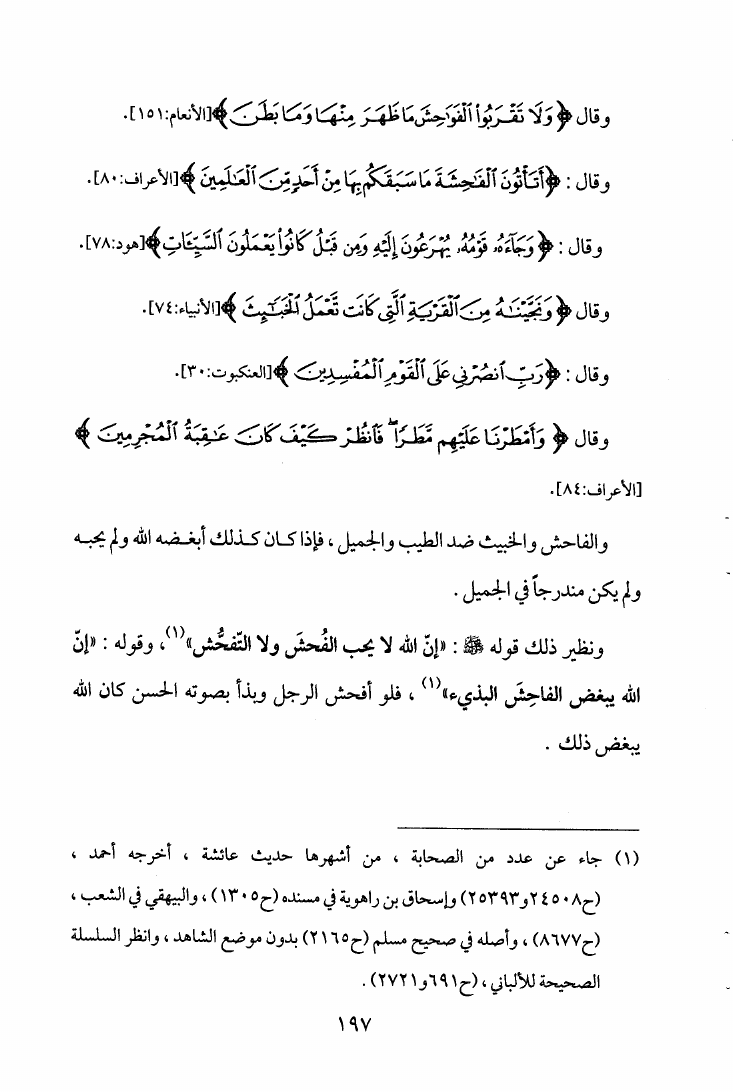 وقال ﴿ وَلَا تَقْرَبُوا۟ ٱلْفَوَٰحِشَ مَا ظَهَرَ مِنْهَا وَمَا بَطَنَ ﴾[الأنعام:١٥١].
وقال : ﴿أَتَأْتُونَ ٱلْفَٰحِشَةَ مَا سَبَقَكُم بِهَا مِنْ أَحَدٍ مِّنَ ٱلْعَٰلَمِينَ ﴾[الأعراف:٨٠].
وقال : ﴿ وَجَآءَهُۥ قَوْمُهُۥ يُهْرَعُونَ إِلَيْهِ وَمِن قَبْلُ كَانُوا۟ يَعْمَلُونَ ٱلسَّيِّـَٔاتِ﴾[هود:٧٨].
وقال ﴿ وَنَجَّيْنَٰهُ مِنَ ٱلْقَرْيَةِ ٱلَّتِى كَانَت تَّعْمَلُ ٱلْخَبَٰٓئِثَ ﴾[الأنبياء:٧٤].
وقال : ﴿رَبِّ ٱنصُرْنِى عَلَى ٱلْقَوْمِ ٱلْمُفْسِدِينَ ﴾[العنكبوت:٣٠].
وقال ﴿ وَأَمْطَرْنَا عَلَيْهِم مَّطَرًا ۖ فَٱنظُرْ كَيْفَ كَانَ عَٰقِبَةُ ٱلْمُجْرِمِينَ ﴾
[الأعراف:٨٤].
والفاحش والخبيث ضد الطيب والجميل ، فإذا كان كذلك أبغضه الله ولم يحبه
ولم يكن مندرجاً في الجميل .
ونظير ذلك قوله ﷺ : «إنّ الله لا يحب الفُحشَ ولا التّفحُّش»(١)، وقوله : «إنّ
الله يبغض الفاحِشَ البذيء»(١) ، فلو أفحش الرجل وبذأ بصوته الحسن كان الله
يبغض ذلك .
(١) جاء عن عدد من الصحابة ، من أشهرها حديث عائشة ، أخرجه أحمد ،
(ح٢٤٥٠٨و٢٥٣٩٣) وإسحاق بن راهوية في مسنده (ح١٣٠٥) ، والبيهقي في الشعب ،
(ح٨٦٧٧) ، وأصله في صحيح مسلم (ح٢١٦٥) بدون موضع الشاهد ، وانظر السلسلة
الصحيحة للألباني ، (ح٦٩١و٢٧٢١) .
١٩٧